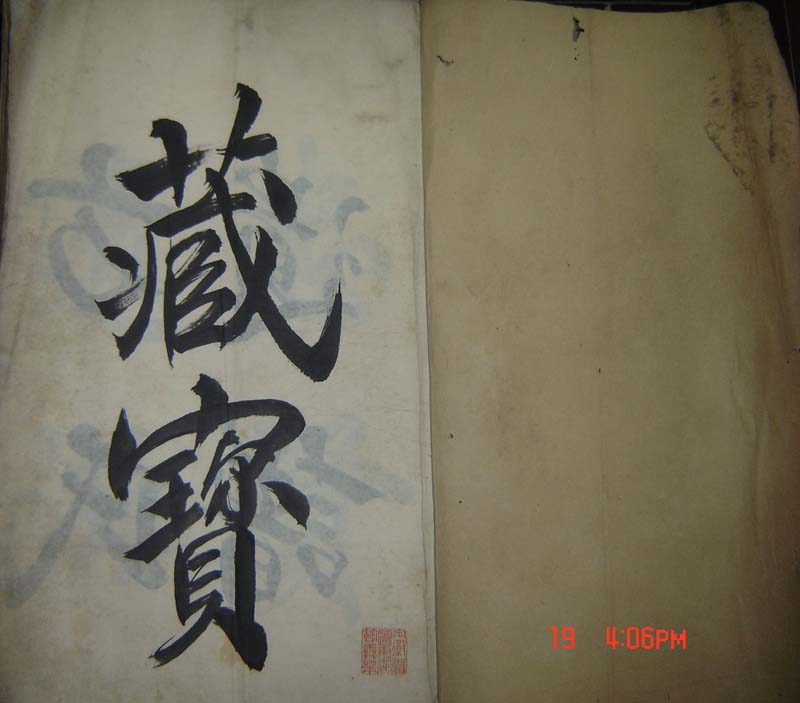 藏
寳
19 4:06PM